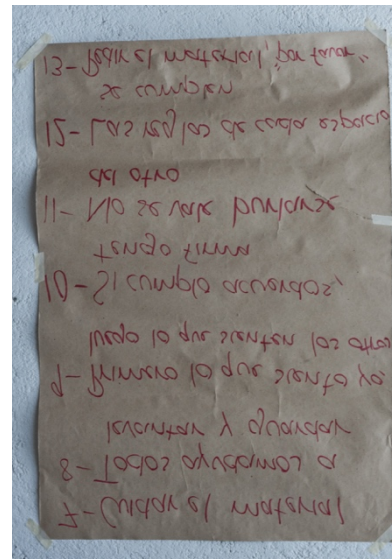 7- Cuidar el material
8- Todos ayudamos a
levantar y guardar
9- Primero lo que siento yo,
luego lo que sienten los otros
10- Si cumplo acuerdos,
tengo firma
11- No se vale burlarse
del otro
12- Las reglas de cada espacio
se cumplen
13- Pedir el material, "por favor"